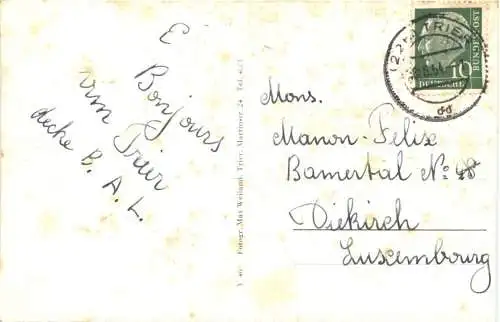 E
Bonjours
vum Trier
decke B. A. L.
V 407 Fotogr. Max Weiland, Trier, Martinstr. 24 Tel.
Mons.
Manon-Felix
Bamertal No 48
Diekirch
Luxembourg
TRIER
DEUTSCHE
BUNDESPOST
10